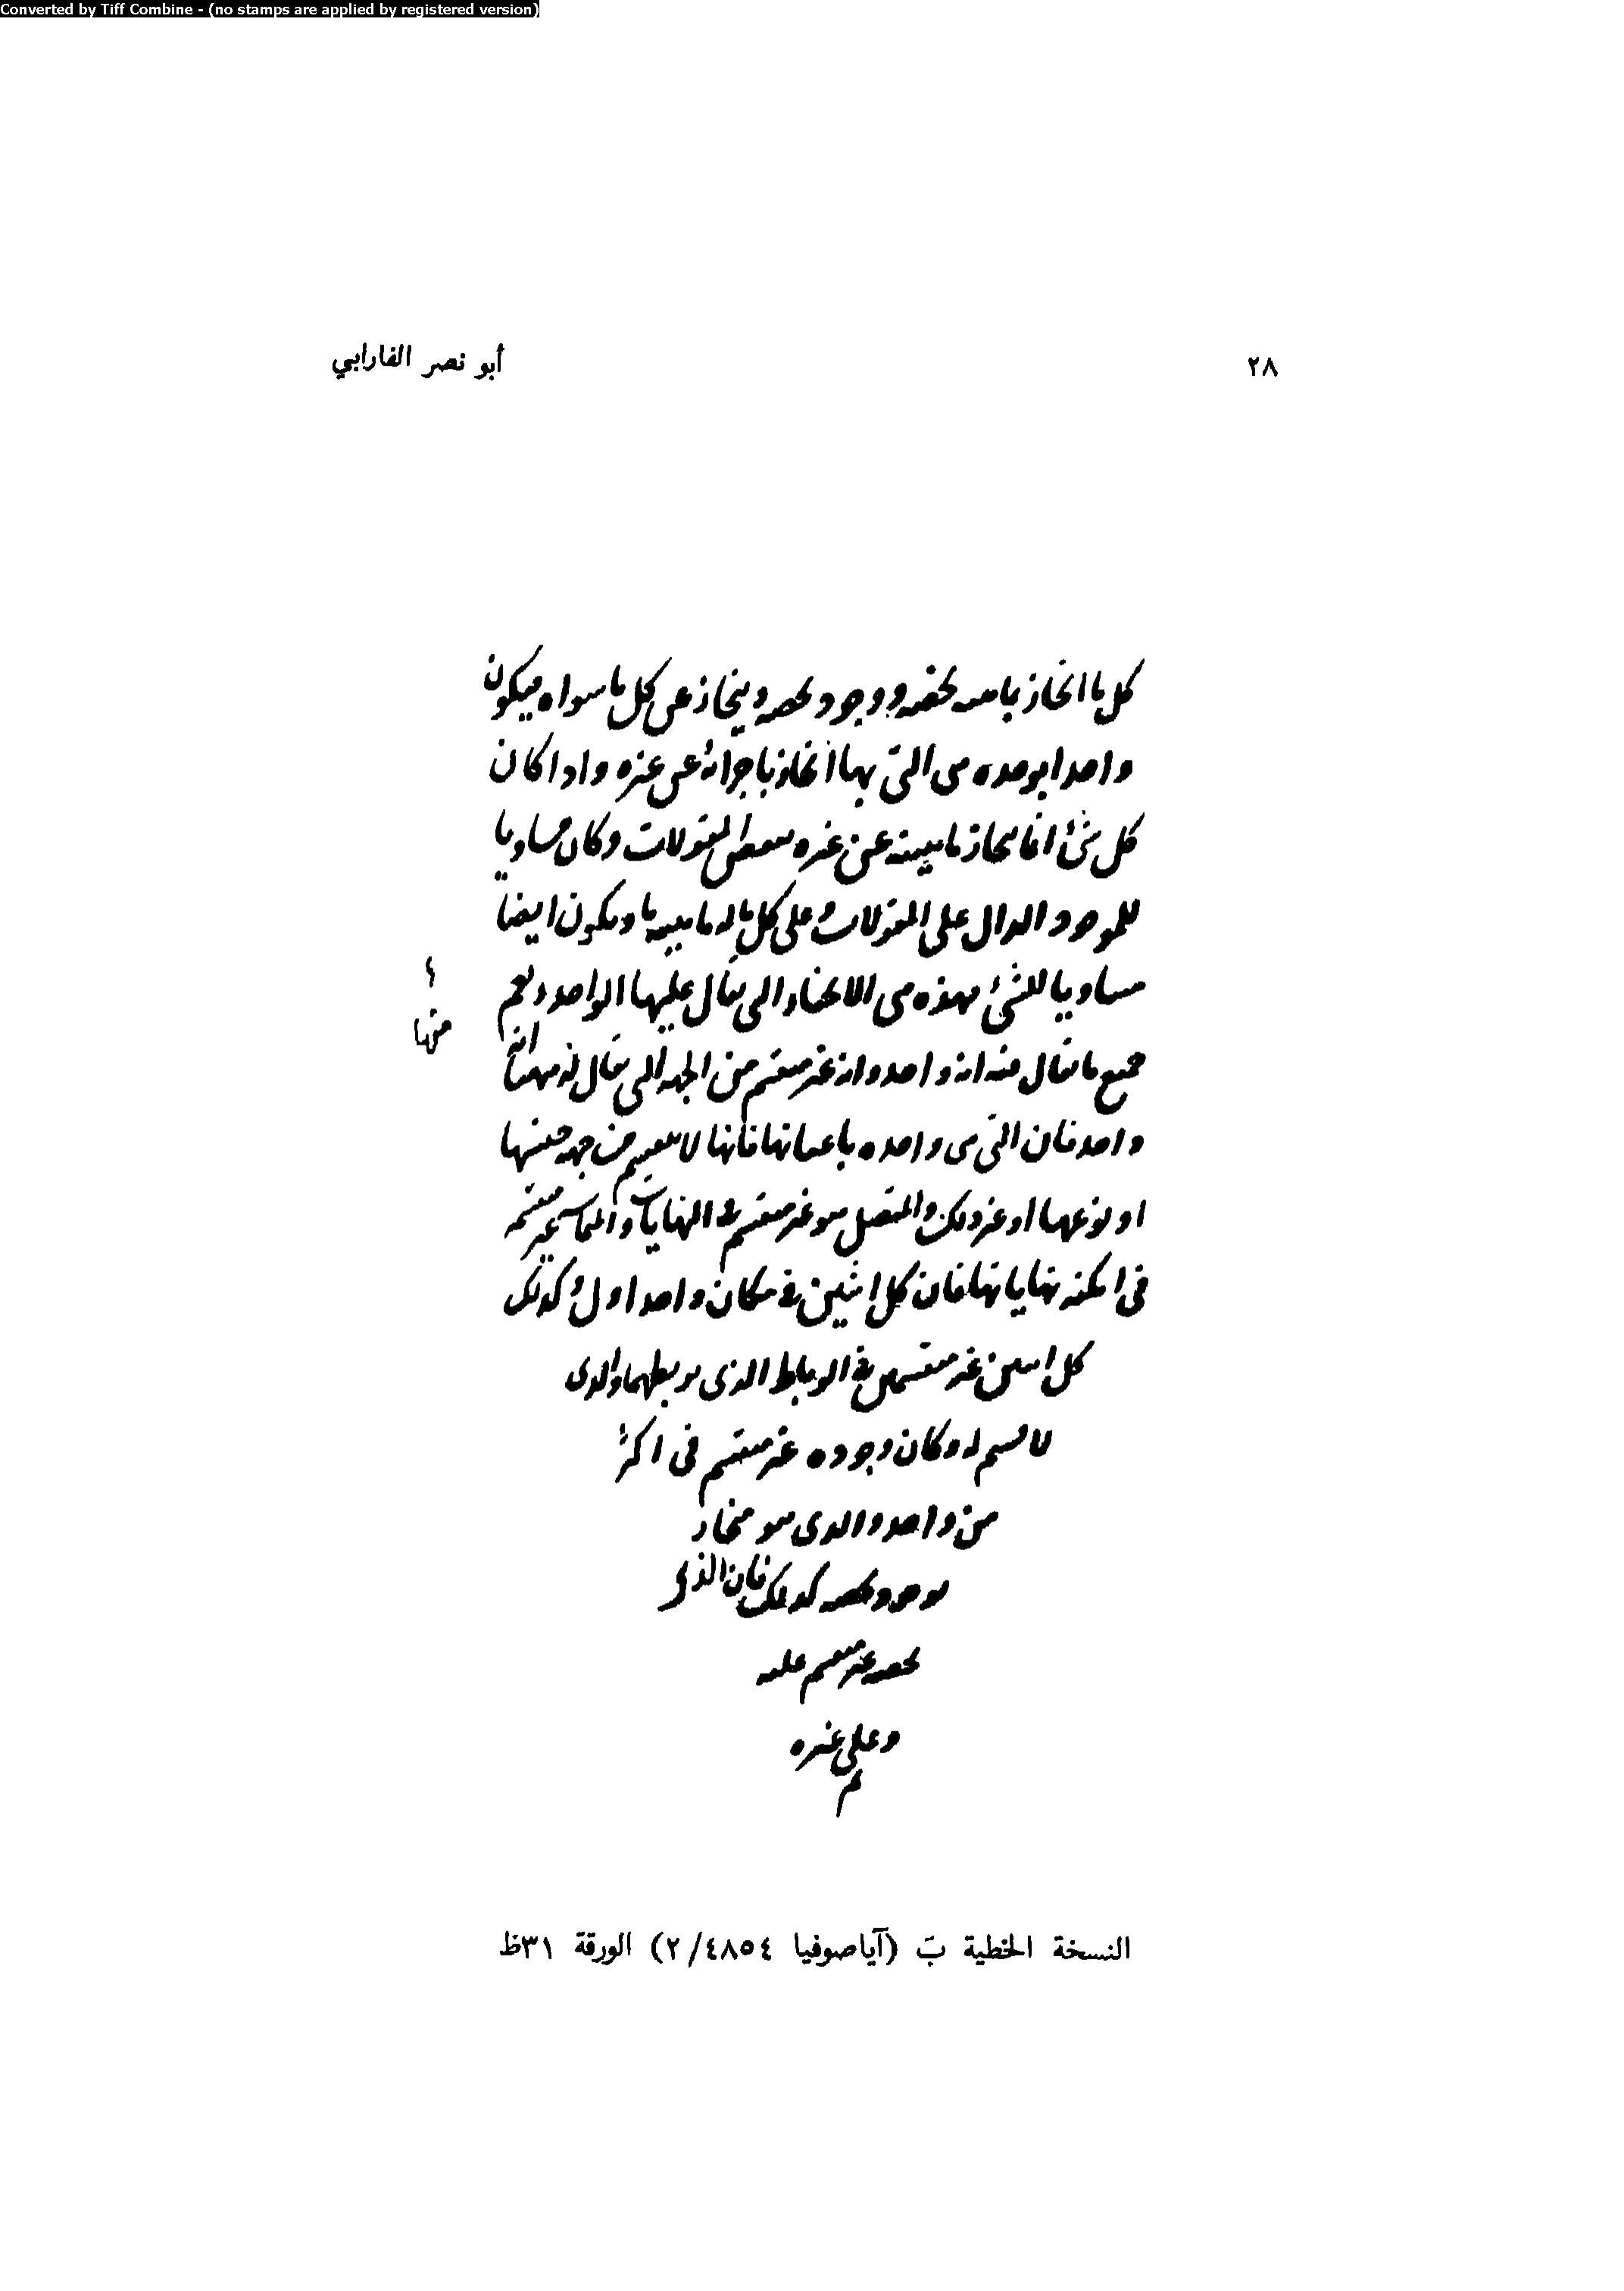 Converted by Tiff Combine - (no stamps are applied by registered version)
٢٨
أبو نصر الفارابي
كل ما انحاز بماهيه تخصه ووجود يخصه وينحاز عن كل ما سواه فيكون
واحدا بوحده هي التي بها انحاز باجزائه عن غيره واذا كان
كل شئ انما ينحاز بماهيته عن غيره بعض المقولات وكان مساويا
للموجود الدال على المقولات وعلى كل ما له ماهيه ما ويكون ايضا
مساويا للشئ فهذه هي الانحاء التي يقال عليها الواحد ويعم
منها
جميع ما يقال فيه انه واحد وانه غير منقسم من الجهه التي يقال فيه بها انه
واحد فان التي هي واحده باعيانها فانها لا تنقسم من جهه جنسها
او نوعها او غير ذلك والمتصل هو غير منقسم في النهايات والمماسه غير منقسمه
في امكنه نهاياتها فان كل اثنين في مكان واحد اول وكذلك
كل اثنين غير منقسمين في الرباط الذي يربطهما والذي
لا قسيم له وكان وجوده غير منقسم في اكثر
من واحد والذي هو منحاز
بوجود يخصه كذلك فان الذي
يخصه غير منقسم عليه
وعلى غيره
النسخة الخطية بَ (آياصوفيا ٤٨٥٤/٢) الورقة ٣١ظ